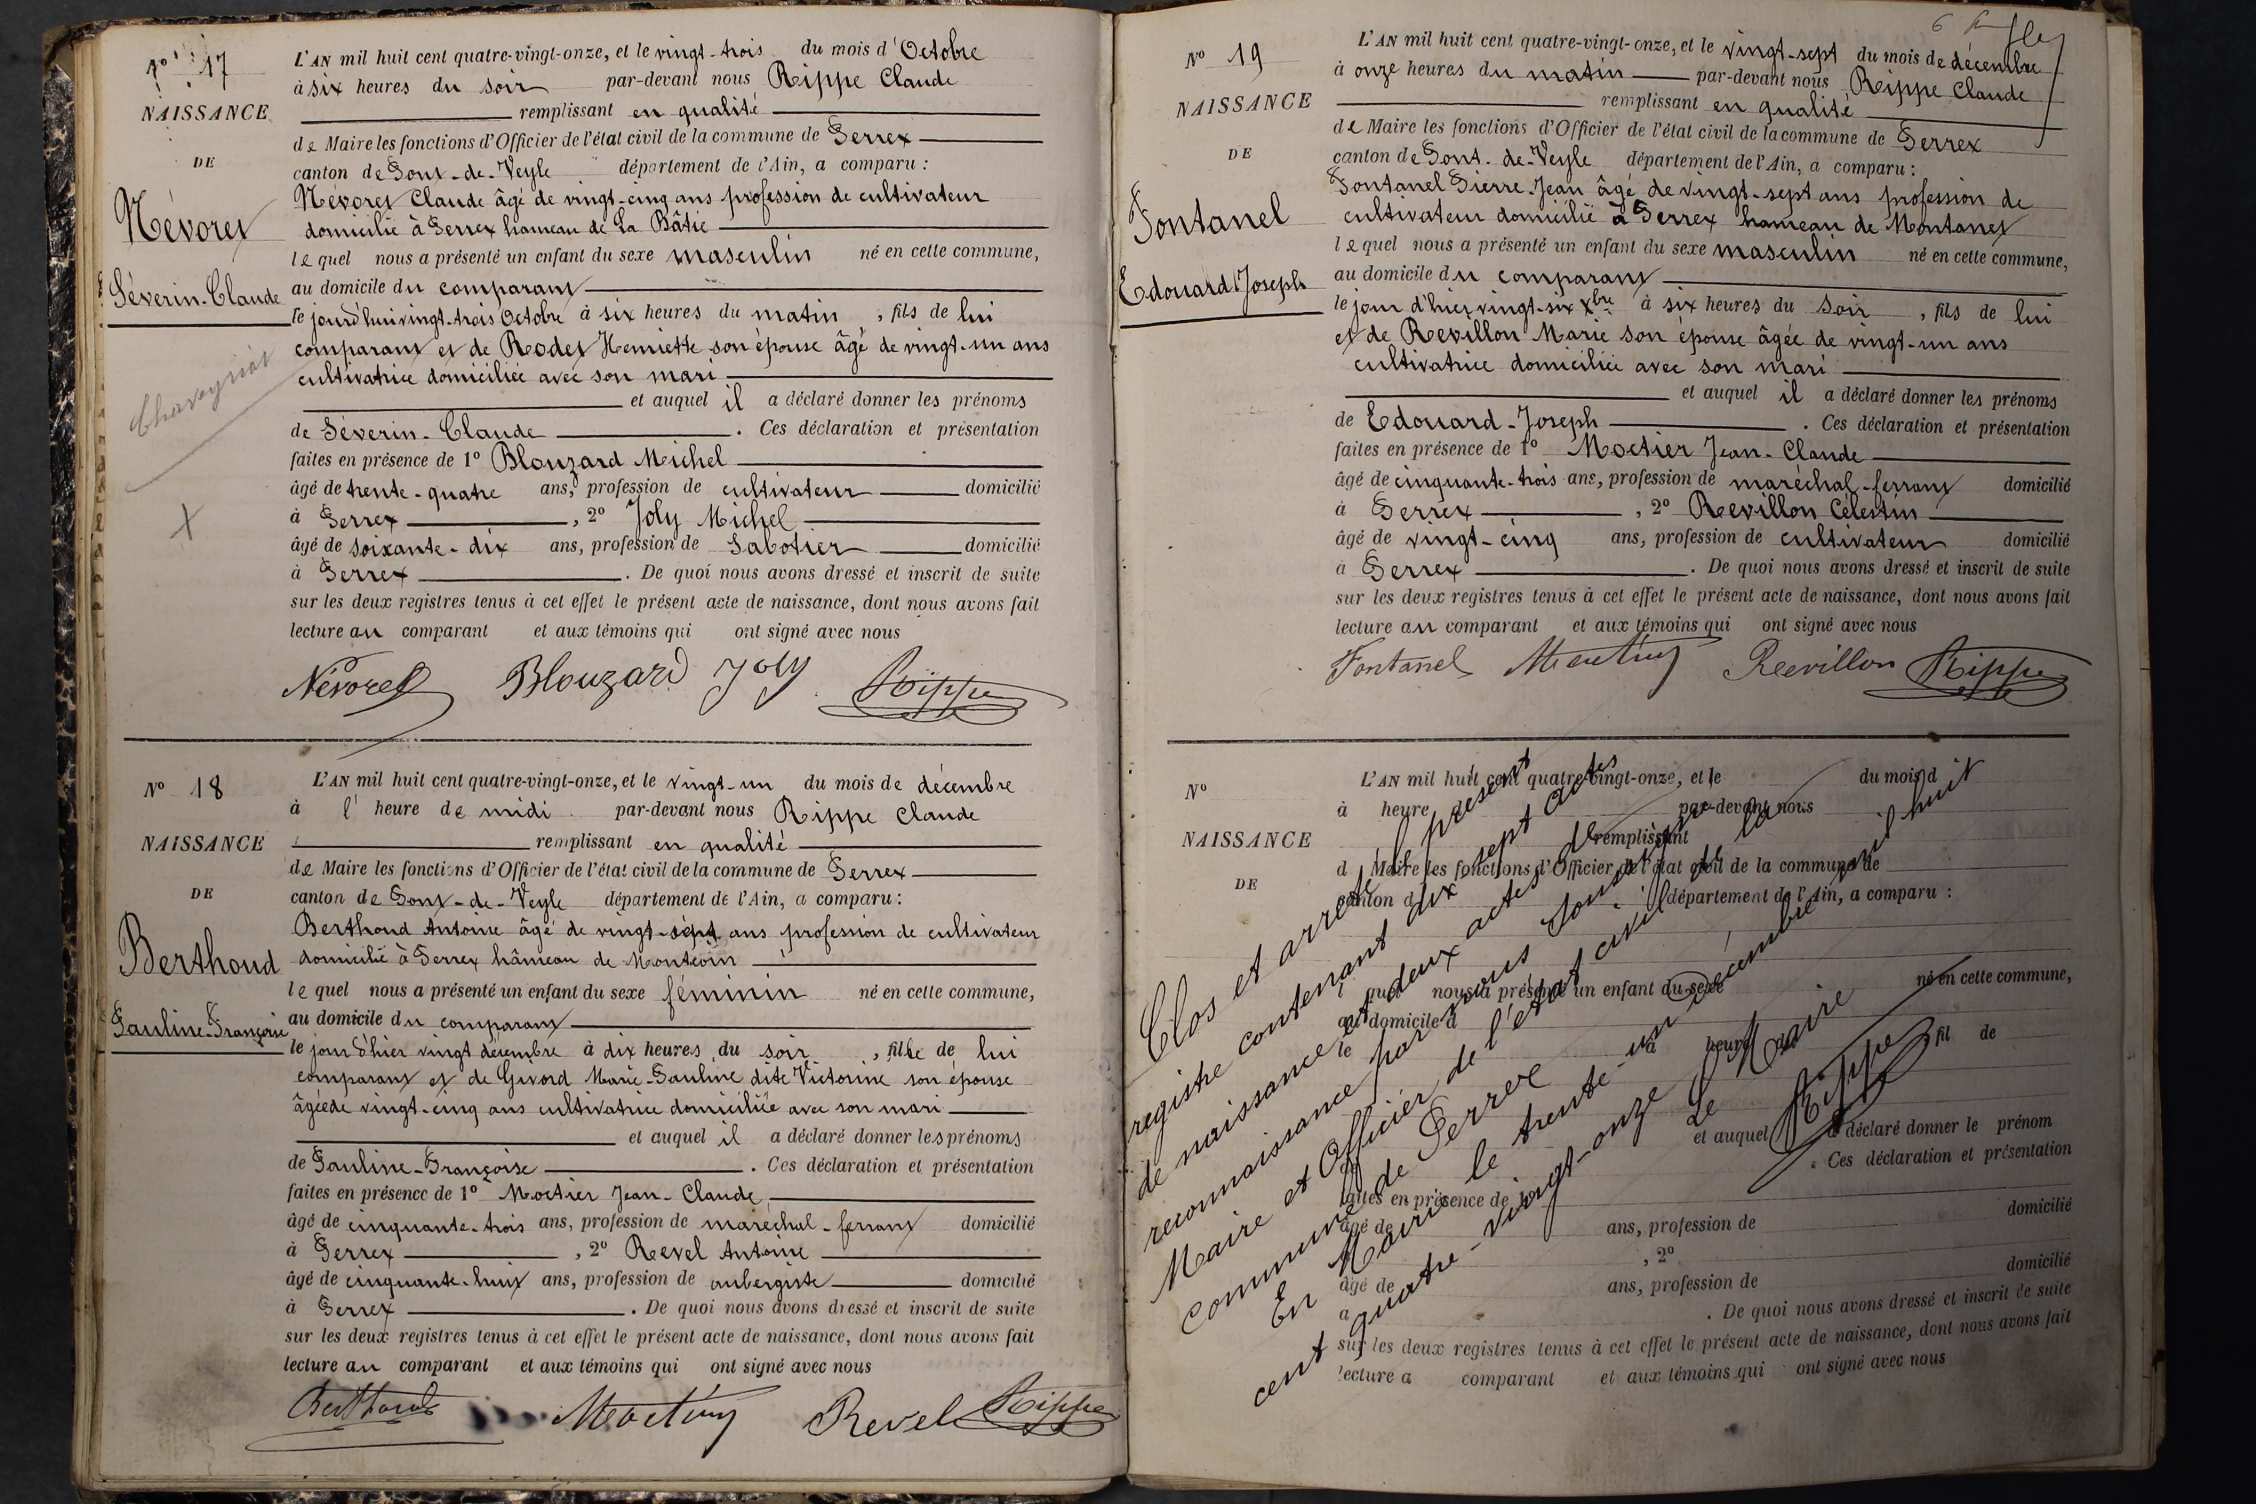 No 17
NAISSANCE
DE
Névoret
Séverin-Claude
Chaveyriat
L'AN mil huit cent quatre-vingt-onze, et le vingt-trois du mois d'Octobre
à six heures du soir par-devant nous Rippe Claude
remplissant en qualité
de Maire les fonctions d'Officier de l'état civil de la commune de Perrex
canton de Pont-de-Veyle département de l'Ain, a comparu :
Névoret Claude âgé de vingt-cinq ans profession de cultivateur
domicilié à Perrex hameau de La Bâtie
lequel nous a présenté un enfant du sexe masculin né en cette commune,
au domicile du comparant
le jourd'hui vingt-trois Octobre à six heures du matin, fils de lui
comparant et de Rodet Henriette son épouse âgé de vingt-un ans
cultivatrice domiciliée avec son mari
et auquel il a déclaré donner les prénoms
de Séverin-Claude. Ces déclaration et présentation
faites en présence de 1° Blouzard Michel
âgé de trente-quatre ans, profession de cultivateur domicilié
à Perrex, 2° Joly Michel
âgé de soixante-dix ans, profession de Sabotier domicilié
à Perrex. De quoi nous avons dressé et inscrit de suite
sur les deux registres tenus à cet effet le présent acte de naissance, dont nous avons fait
lecture au comparant et aux témoins qui ont signé avec nous
Névoret Blouzard Joly Rippe
No 18
NAISSANCE
DE
Berthoud
Pauline-Françoise
L'AN mil huit cent quatre-vingt-onze, et le vingt-un du mois de décembre
à l'heure de midi par-devant nous Rippe Claude
remplissant en qualité
de Maire les fonctions d'Officier de l'état civil de la commune de Perrex
canton de Pont-de-Veyle département de l'Ain, a comparu :
Berthoud Antoine âgé de vingt-sept ans profession de cultivateur
domicilié à Perrex hâmeau de Montcoin
lequel nous a présenté un enfant du sexe féminin né en cette commune,
au domicile du comparant
le jour d'hier vingt décembre à dix heures du soir, fille de lui
comparant et de Givord Marie-Pauline dite Victorine son épouse
âgée de vingt-cinq ans cultivatrice domiciliée avec son mari
et auquel il a déclaré donner les prénoms
de Pauline-Françoise. Ces déclaration et présentation
faites en présence de 1° Moctier Jean-Claude
âgé de cinquante-trois ans, profession de maréchal-ferrant domicilié
à Perrex, 2° Revel Antoine
âgé de cinquante-huit ans, profession de aubergiste domicilié
à Perrex. De quoi nous avons dressé et inscrit de suite
sur les deux registres tenus à cet effet le présent acte de naissance, dont nous avons fait
lecture au comparant et aux témoins qui ont signé avec nous
Berthoud Revel Rippe
6
No 19
NAISSANCE
DE
Fontanel
Edouard Joseph
L'AN mil huit cent quatre-vingt-onze, et le vingt-sept du mois de décembre
à onze heures du matin par-devant nous Rippe Claude
remplissant en qualité
de Maire les fonctions d'Officier de l'état civil de la commune de Perrex
canton de Pont-de-Veyle département de l'Ain, a comparu :
Fontanel Pierre-Jean âgé de vingt-sept ans profession de
cultivateur domicilié à Perrex hameau de Montanet
lequel nous a présenté un enfant du sexe masculin né en cette commune,
au domicile du comparant
le jour d'hier vingt-six Xbre à six heures du soir, fils de lui
et de Revillon Marie son épouse âgée de vingt-un ans
cultivatrice domiciliée avec son mari
et auquel il a déclaré donner les prénoms
de Edouard-Joseph. Ces déclaration et présentation
faites en présence de 1° Moctier Jean-Claude
âgé de cinquante-trois ans, profession de maréchal-ferrant domicilié
à Perrex, 2° Revillon Célestin
âgé de vingt-cinq ans, profession de cultivateur domicilié
à Perrex. De quoi nous avons dressé et inscrit de suite
sur les deux registres tenus à cet effet le présent acte de naissance, dont nous avons fait
lecture au comparant et aux témoins qui ont signé avec nous
Fontanel Revillon Rippe
No
NAISSANCE
DE
L'AN mil huit cent quatre-vingt-onze, et le du mois d
à heure par-devant nous
remplissant
d Maire les fonctions d'Officier de l'état civil de la commune de
canton d département de l'Ain, a comparu :
l quel nous a présenté un enfant du sexe né en cette commune,
au domicile d
le à heure d fil de
et auquel a déclaré donner le prénom
. Ces déclaration et présentation
faites en présence de 1°
âgé de ans, profession de domicilié
, 2°
âgé de ans, profession de domicilié
à . De quoi nous avons dressé et inscrit de suite
sur les deux registres tenus à cet effet le présent acte de naissance, dont nous avons fait
lecture a comparant et aux témoins qui ont signé avec nous
Clos et arrêté le présent
registre contenant dix sept actes
de naissance et deux actes de
reconnaissance par nous soussigné
Maire et Officier de l'état civil de la
commune de Perrex
En Mairie le trente-un décembre mil huit
cent quatre-vingt-onze
Le Maire
Rippe